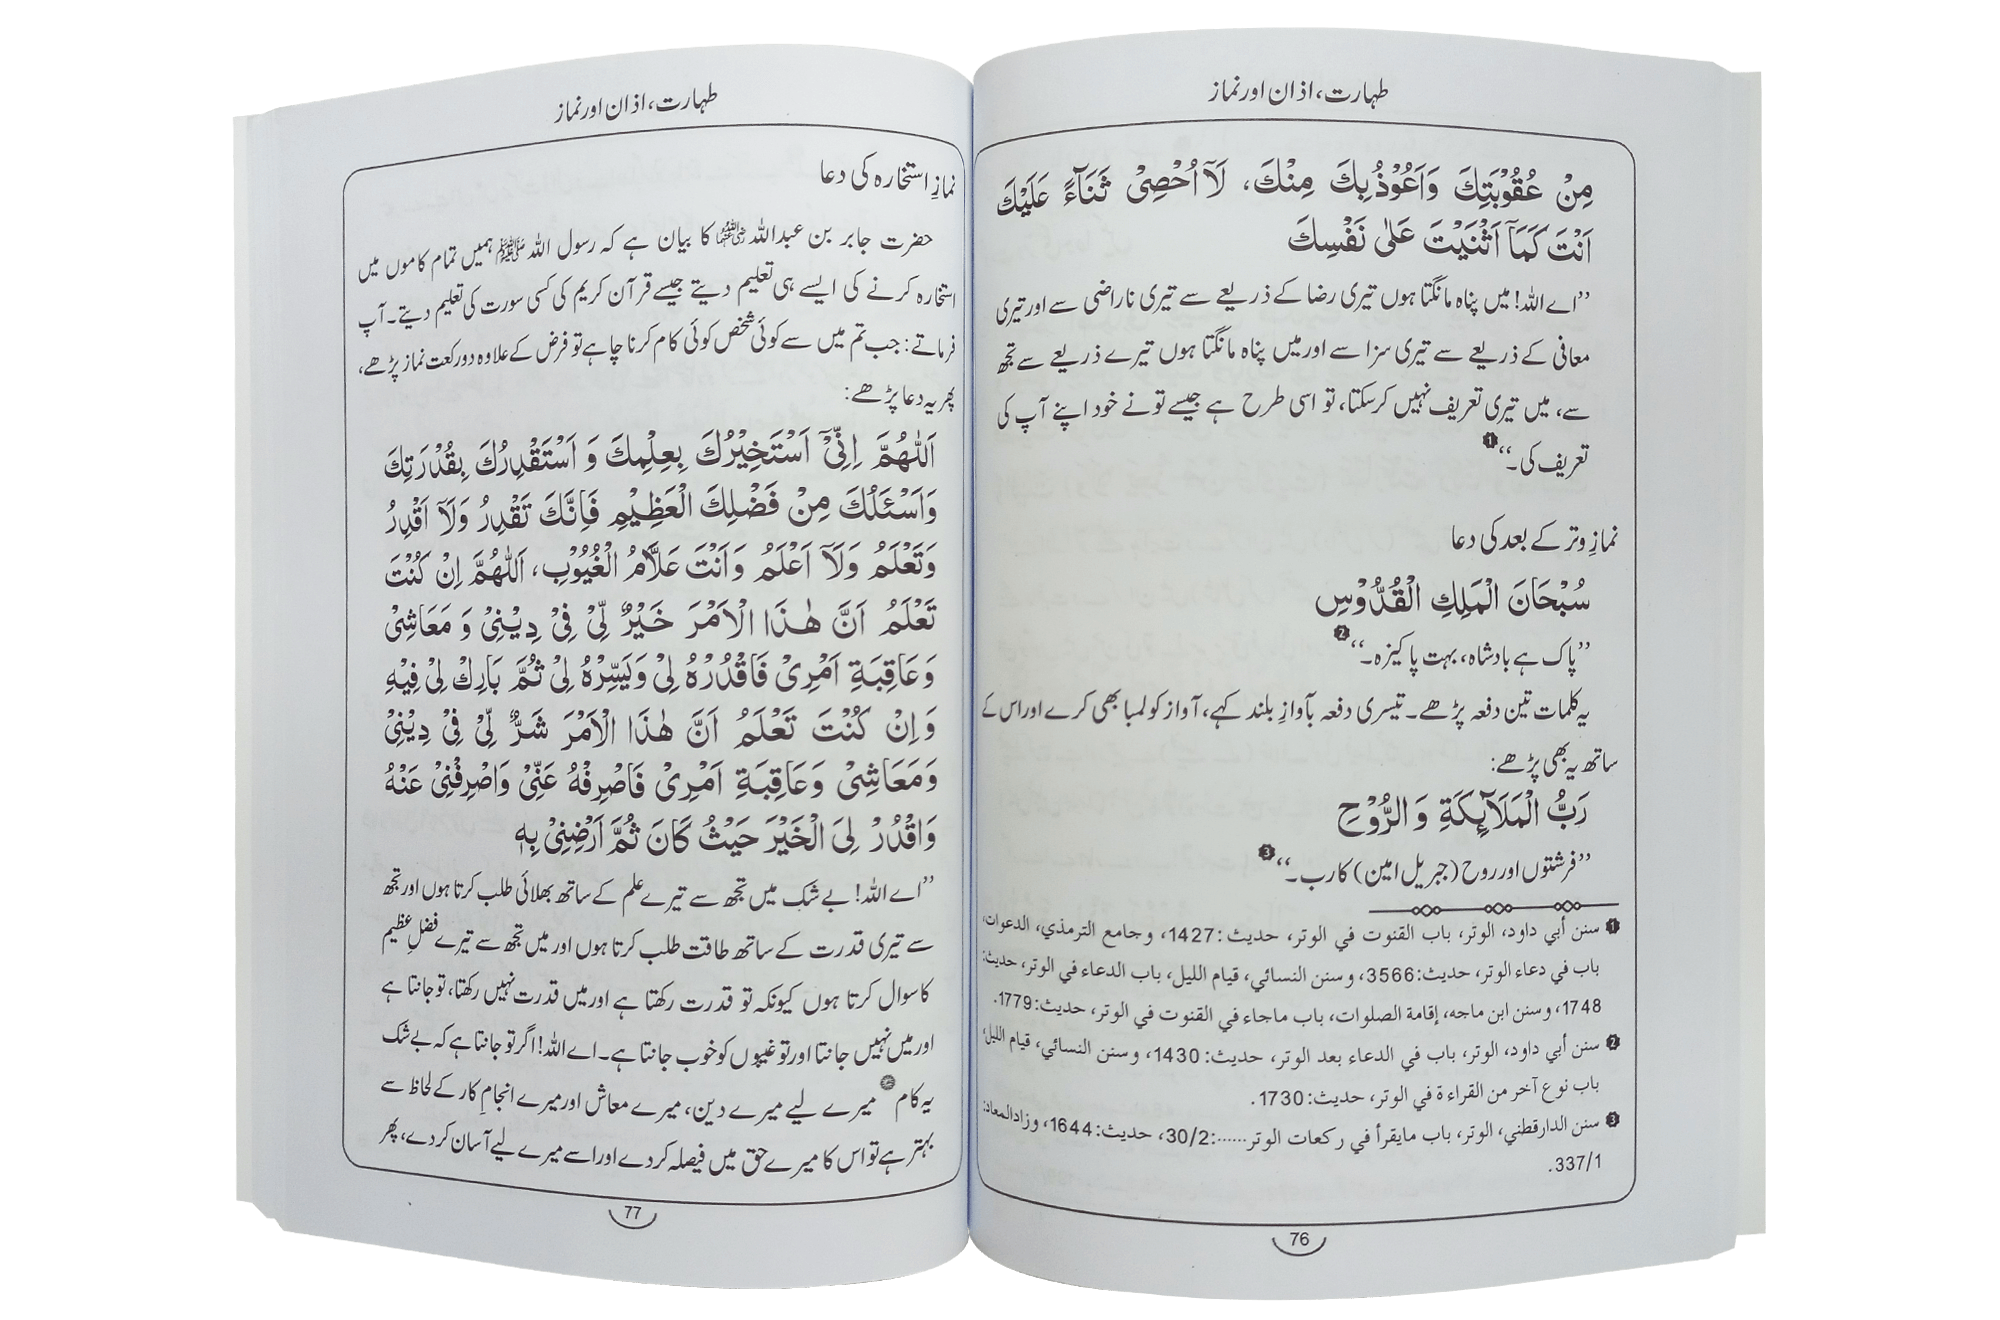 طہارت، اذان اور نماز
مِنْ عُقُوْبَتِكَ وَاَعُوْذُبِكَ مِنْكَ، لَآ اُحْصِیْ ثَنَآءً عَلَيْكَ
اَنْتَ كَمَآ اَثْنَيْتَ عَلٰی نَفْسِكَ
’’اے اللہ! میں پناہ مانگتا ہوں تیری رضا کے ذریعے سے تیری ناراضی سے اور تیری
معافی کے ذریعے سے تیری سزا سے اور میں پناہ مانگتا ہوں تیرے ذریعے سے تجھ
سے، میں تیری تعریف نہیں کرسکتا، تو اسی طرح ہے جیسے تو نے خود اپنے آپ کی
تعریف کی۔‘‘ 1
نمازِ وتر کے بعد کی دعا
سُبْحَانَ الْمَلِكِ الْقُدُّوْسِ
’’پاک ہے بادشاہ، بہت پاکیزہ۔‘‘ 2
یہ کلمات تین دفعہ پڑھے۔ تیسری دفعہ بآوازِ بلند کہے، آواز کو لمبا بھی کرے اور اس کے
ساتھ یہ بھی پڑھے:
رَبُّ الْمَلَآئِكَةِ وَالرُّوْحِ
’’فرشتوں اور روح (جبریل امین) کا رب۔‘‘ 3
1 سنن أبي داود، الوتر، باب القنوت في الوتر، حديث: 1427، وجامع الترمذي، الدعوات،
باب في دعاء الوتر، حديث: 3566، وسنن النسائي، قيام الليل، باب الدعاء في الوتر، حديث:
1748، وسنن ابن ماجه، إقامة الصلوات، باب ماجاء في القنوت في الوتر، حديث: 1779.
2 سنن أبي داود، الوتر، باب في الدعاء بعد الوتر، حديث: 1430، وسنن النسائي، قيام الليل،
باب نوع آخر من القراءة في الوتر، حديث: 1730.
3 سنن الدارقطني، الوتر، باب مايقرأ في ركعات الوتر......: 30/2، حديث: 1644، وزادالمعاد:
337/1.
76
طہارت، اذان اور نماز
نمازِ استخارہ کی دعا
حضرت جابر بن عبداللہ رضی اللہ عنہما کا بیان ہے کہ رسول اللہ ﷺ ہمیں تمام کاموں میں
استخارہ کرنے کی ایسے ہی تعلیم دیتے جیسے قرآن کریم کی کسی سورت کی تعلیم دیتے۔ آپ
فرماتے: جب تم میں سے کوئی شخص کوئی کام کرنا چاہے تو فرض کے علاوہ دو رکعت نماز پڑھے،
پھر یہ دعا پڑھے:
اَللّٰهُمَّ اِنِّیْٓ اَسْتَخِيْرُكَ بِعِلْمِكَ وَ اَسْتَقْدِرُكَ بِقُدْرَتِكَ
وَاَسْئَلُكَ مِنْ فَضْلِكَ الْعَظِيْمِ فَاِنَّكَ تَقْدِرُ وَلَآ اَقْدِرُ
وَتَعْلَمُ وَلَآ اَعْلَمُ وَاَنْتَ عَلَّامُ الْغُيُوْبِ، اَللّٰهُمَّ اِنْ كُنْتَ
تَعْلَمُ اَنَّ هٰذَا الْاَمْرَ خَيْرٌ لِّیْ فِیْ دِيْنِیْ وَ مَعَاشِیْ
وَعَاقِبَةِ اَمْرِیْ فَاقْدُرْهُ لِیْ وَيَسِّرْهُ لِیْ ثُمَّ بَارِكْ لِیْ فِيْهِ
وَاِنْ كُنْتَ تَعْلَمُ اَنَّ هٰذَا الْاَمْرَ شَرٌّ لِّیْ فِیْ دِيْنِیْ
وَمَعَاشِیْ وَعَاقِبَةِ اَمْرِیْ فَاصْرِفْهُ عَنِّیْ وَاصْرِفْنِیْ عَنْهُ
وَاقْدُرْ لِیَ الْخَيْرَ حَيْثُ كَانَ ثُمَّ اَرْضِنِیْ بِهٖ
’’اے اللہ! بے شک میں تجھ سے تیرے علم کے ساتھ بھلائی طلب کرتا ہوں اور تجھ
سے تیری قدرت کے ساتھ طاقت طلب کرتا ہوں اور میں تجھ سے تیرے فضلِ عظیم
کا سوال کرتا ہوں کیونکہ تو قدرت رکھتا ہے اور میں قدرت نہیں رکھتا، تو جانتا ہے
اور میں نہیں جانتا اور تو غیبوں کو خوب جانتا ہے۔ اے اللہ! اگر تو جانتا ہے کہ بے شک
یہ کام میرے لیے میرے دین، میرے معاش اور میرے انجامِ کار کے لحاظ سے
بہتر ہے تو اس کا میرے حق میں فیصلہ کر دے اور اسے میرے لیے آسان کر دے، پھر
77